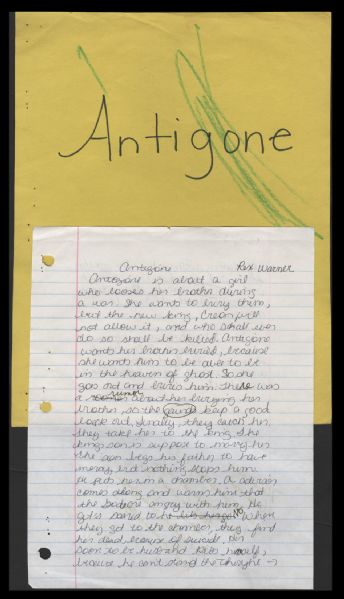 Antigone
Antigone Rex Warner
Antigone is about a girl
who looses her brother during
a war. She wants to bury them,
but the new king, Creon, will
not allow it, and who shall ever
do so shall be killed. Antigone
wants her brother buried, because
she wants him to be able to be
in the heaven of ghost. So she
goes out and buries him. There was
a rumor about her burying her
brother, so the guards keep a good
look out, finally, they catch her,
they take her to the king. The
kings son is suppose to marry her
The son begs his father to have
mercy, but nothing stops him.
He puts her in a chamber. A
comes along and warns him that
the are angry with him. He
gets scared to When
they get to the chamber, they find
her dead because of suicide, his
soon to be husband kills himself,
because he can't stand the thought →